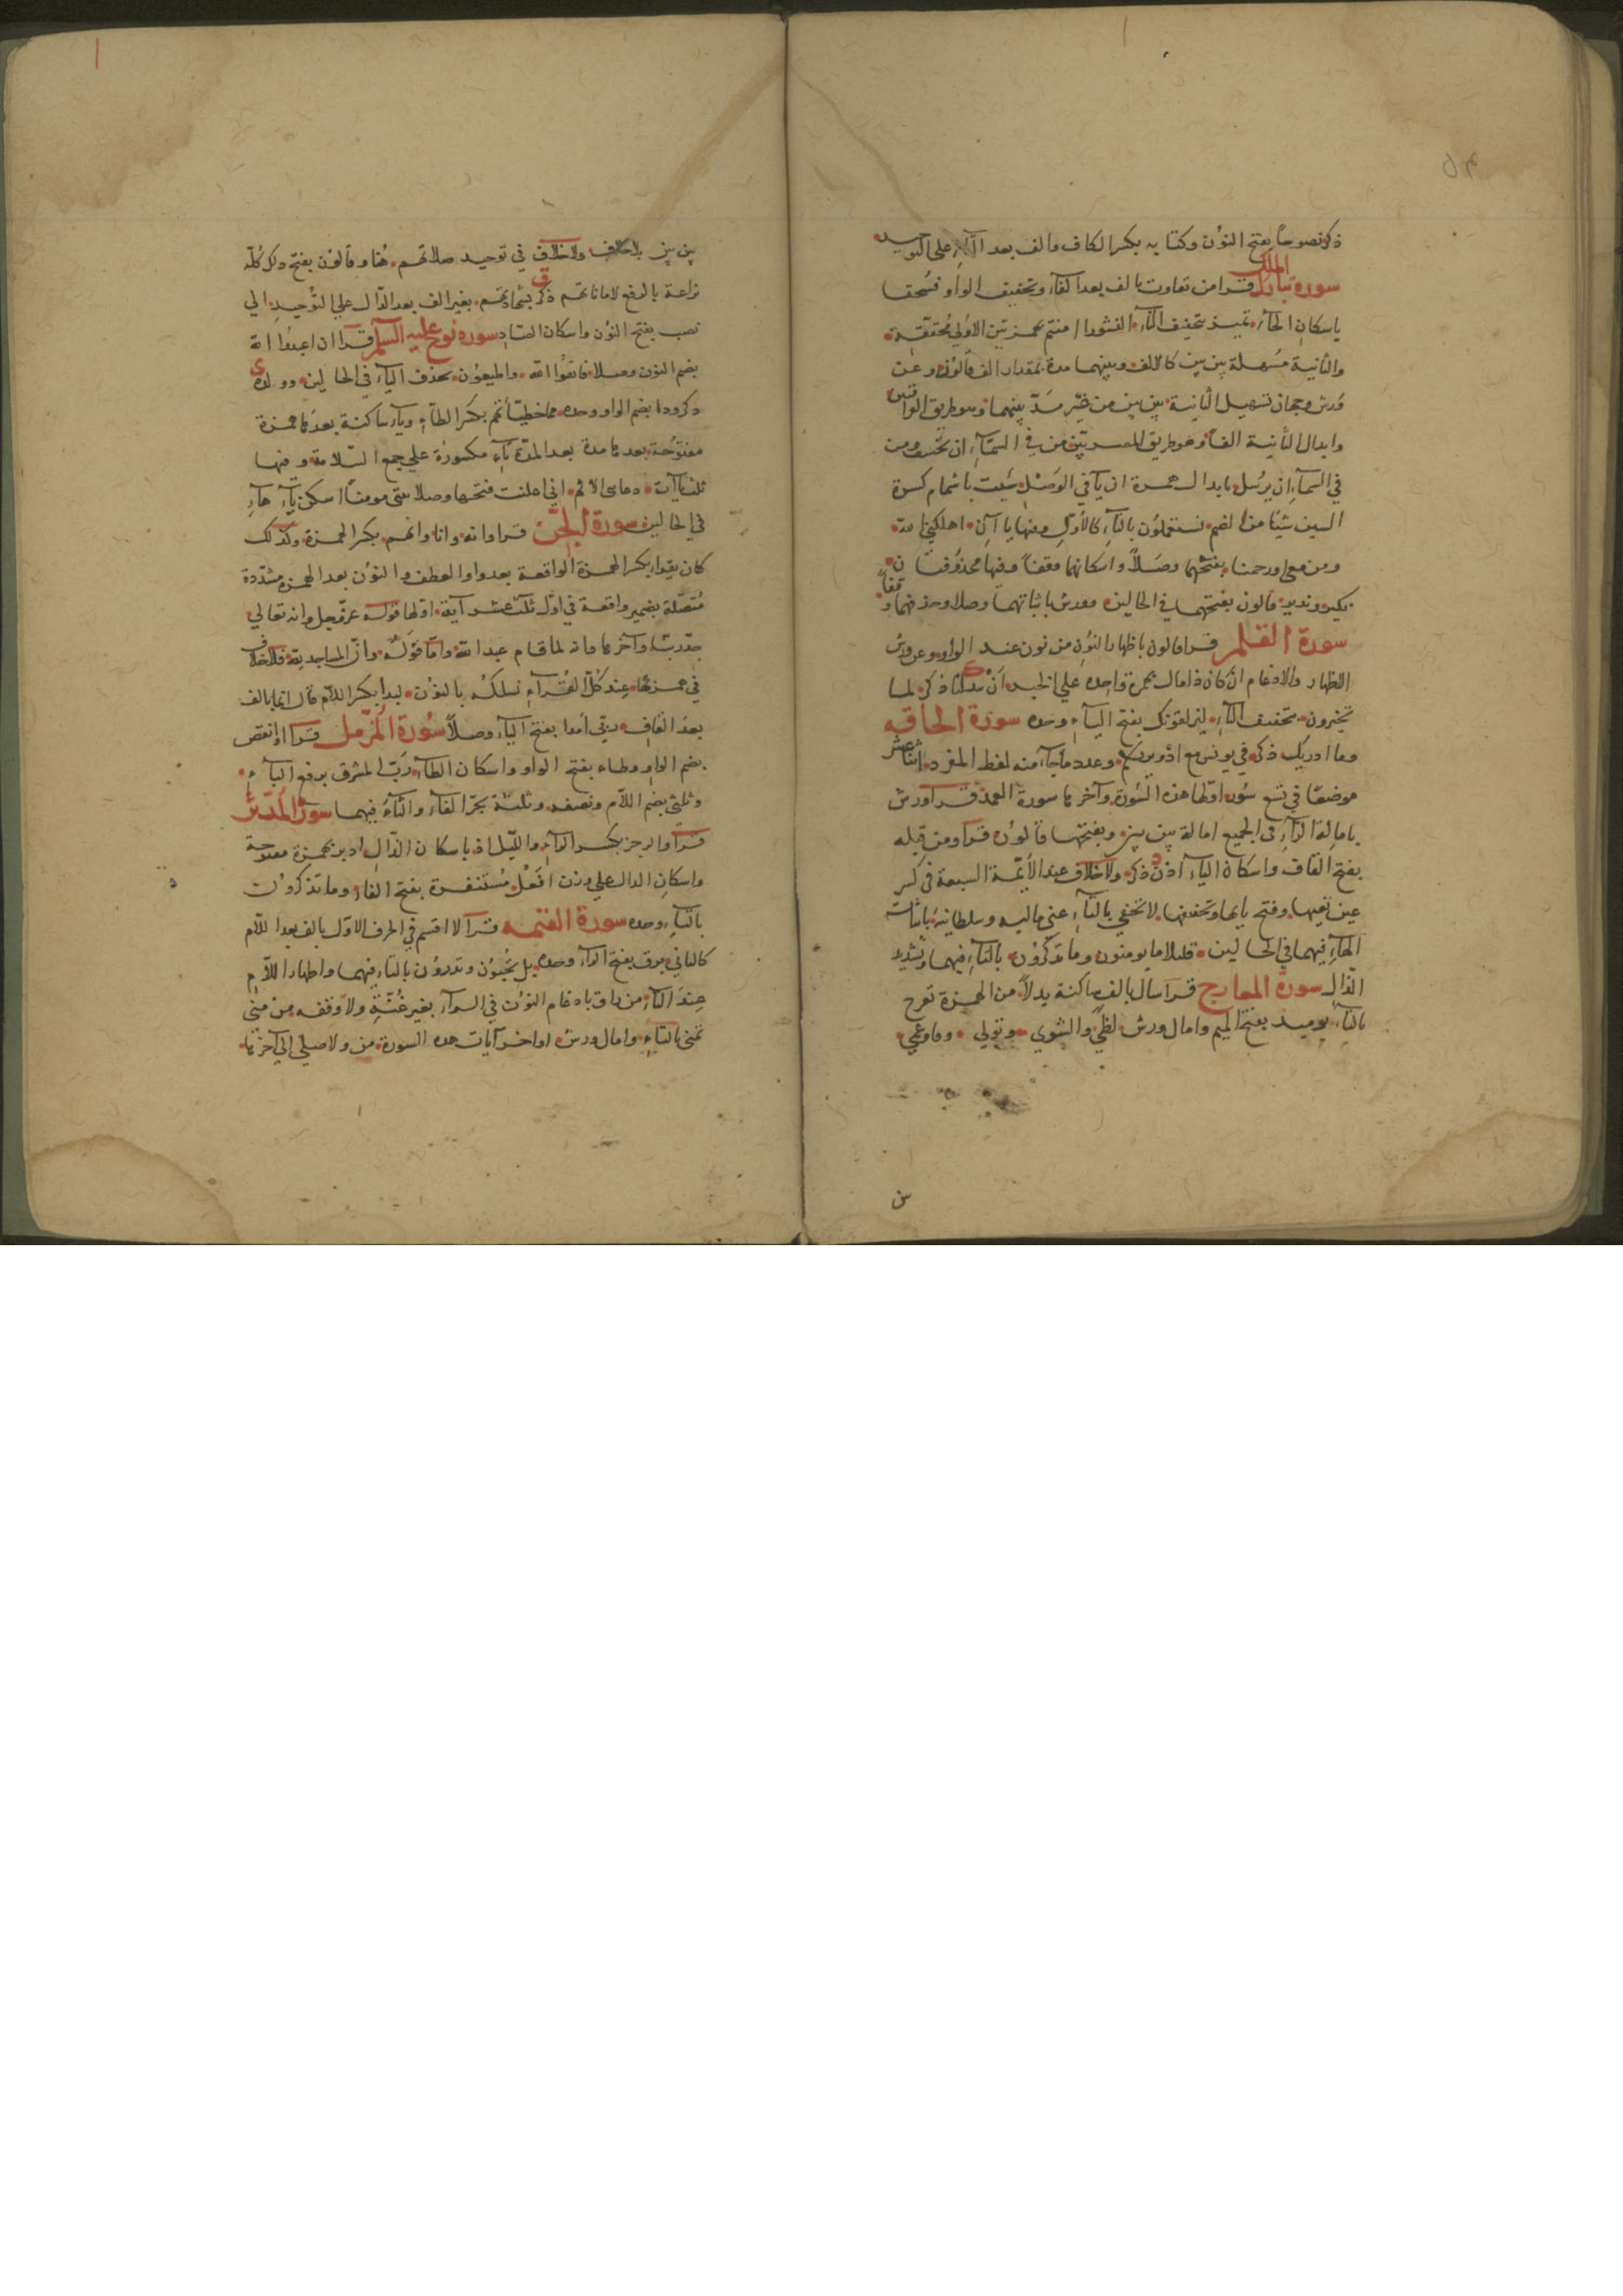 ذكر نصوحاً بفتح النون وكتابه بكسر الكاف والف بعد التاء على التوحيد
سورة تبارك الملك قرا من تفاوت بالف بعد الفاء وتخفيف الواو فسحقا
باسكان الحاء تميز بتخفيف التاء النشور اامنتم بهمزتين الاولى محققة
والثانية مسهلة بين بين كالالف وبينهما مدة بمقدار الف قالون وعن
ورش وجهان تسهيل الثانية بين بين من غير مد بينهما وهو طريق
وابدال الثانية الفاً وهو طريق المصريين من في السماء ان يخسف ومن
في السماء ان يرسل بابدال همزة ان ياء في الوصل سيئت باشمام كسرة
السين شيئا من الضم فستعلمون بالتاء كالاول وفيها ياآن اهلكني الله
ومن معي اورحمنا بفتحهما وصلاً واسكانهما وقفاً وفيها محذوفتان
نكير ونذير قالون بحذفهما في الحالين وورش باثباتهما وصلا وحذفهما وقفاً
سورة القلم قرا قالون باظهار النون من نون عند الواو وعن ورش
الاظهار والادغام ان كان ذا مال بهمزة واحدة على الخبر ان يبدلنا ذكر لما
تخيرون بتخفيف التاء ليزلقونك بفتح الياء وحده سورة الحاقة
وما ادريك ذكر في يونس مع ادريكم وعدد ماجاء منه لفظ المفرد اثنا عشر
موضعًا في تسع سور اولها هذه السورة وآخرها سورة الهمزة قرا ورش
بامالة الراء في الجميع امالة بين بين وبفتحها قالون قرا ومن قبله
بفتح القاف واسكان الباء اذن ذكر ولا خلاف عند الأئمة السبعة في كسر
عين تعيها وفتح يائها وتخفيفها لا تخفى بالتاء عني ماليه وسلطانيه باثبات
الهاء فيهما في الحالين قليلا ما يومنون وما تذكرون بالتاء فيهما وتشديد
الذال سورة المعارج قرا سال بالف ساكنة بدلاً من الهمزة تعرج
بالتاء يوميذ بفتح الميم وامال ورش لظى والشوى وتولى وفاوعى
بين بين بلا خلاف ولا خلاف في توحيد صلاتهم هنا وقالون بفتح ذلك كله
نزاعة بالرفع لاماناتهم ذكر بشهادتهم بغير الف بعد الدال على التوحيد الى
نصب بفتح النون واسكان الصاد سورة نوح عليه السلم قرا ان اعبدوا الله
بضم النون وصلا فاتقوا الله واطيعون بحذف الياء في الحالين وولده
ذكر ودا بضم الواو وحده مما خطيئاتهم بكسر الطاء وياء ساكنة بعدها همزة
مفتوحة بعدها مدة بعد المدة تاء مكسورة على جمع السلامة وفيها
ثلث ياآت دعاءى الا ثم اني اعلنت فتحها وصلا بيتى مومنًا اسكن ياءها
في الحالين سورة الجن قرا وانه وانا وانهم بكسر الهمزة وكذلك
كان يقرا بكسر الهمزة الواقعة بعد واو العطف والنون بعد الهمزة مشددة
متصلة بضمير واقعة في اول ثلث عشر آية اولها قوله عز وجل وانه تعالى
جد ربنا وآخرها وانه لما قام عبد الله واما قوله وان المساجد لله فلا خلاف
في همزتها عند كل القراء نسلكه بالنون لبدا بكسر اللام قال انما بالف
بعد القاف ربي امدا بفتح الياء وصلاً سورة المزمل قرا او انقص
بضم الواو وطاء بفتح الواو واسكان الطاء رب المشرق برفع الباء
وثلثي بضم اللام ونصفه وثلثه بجر الفاء والثاء فيهما سورة المدثر
قرا والرجز بكسر الراء والليل اذ باسكان الذال ادبر بهمزة مفتوحة
واسكان الدال على وزن افعل مستنفرة بفتح الفاء وما تذكرون
بالتاء وحده سورة القيمه قرا لا اقسم في الحرف الاول بالف بعد اللام
كالثاني برق بفتح الراء وحده بل تحبون وتذرون بالتاء فيهما واظهار اللام
عند التاء من راق بادغام النون في الراء بغير غنة ولا وقفه من منى
تمنى بالتاء وامال ورش اواخر آيات هذه السورة من ولا صلى الى آخرها